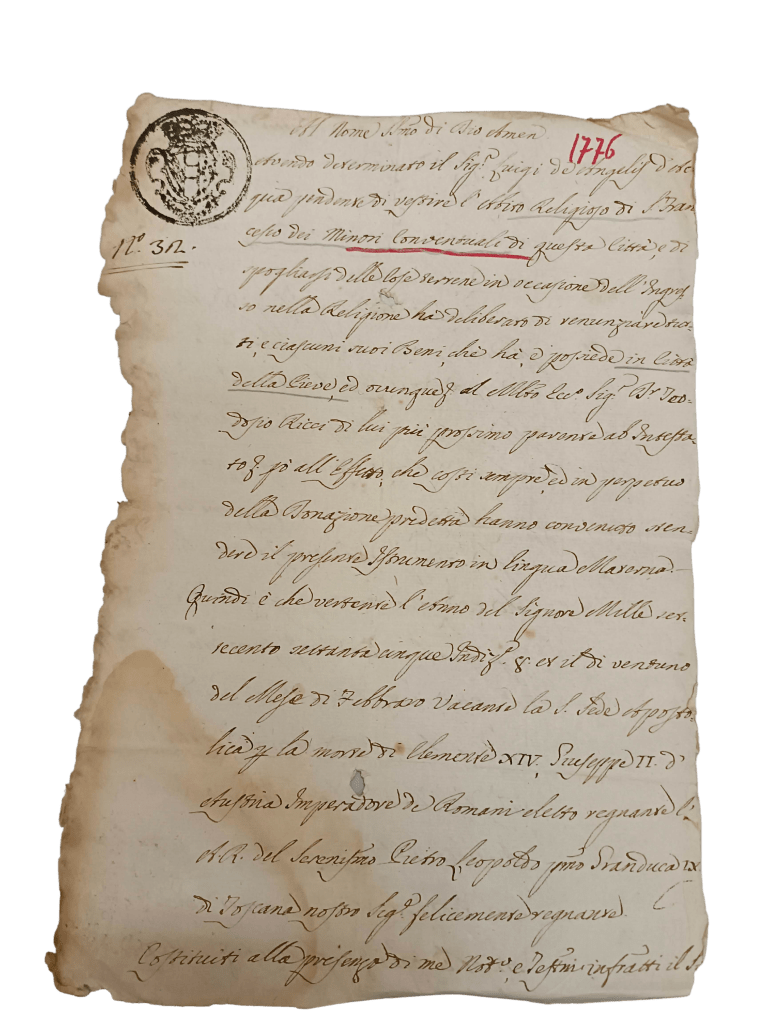 Al Nome SS.mo di Dio Amen
1776
Avendo determinato il Sig.r Luigi de Angelis d'Ac
qua pendente di vestire l'Abito Religioso di S. Fran
N.o 312.
cesco dei Minori Conventuali di questa Città, e di
spogliarsi delle Cose terrene in occasione dell'Ingres
so nella Religione ha deliberato di renunziare tut-
ti, e ciascuni suoi Beni, che ha, e possiede in Città
della Pieve, ed ovunque al Molto Ecc.e Sig.r D.r Teo-
dosio Ricci di lui più prossimo parente ab Intesta-
to p ciò all'Effetto, che costi sempre, ed in perpetuo
della Donazione predetta hanno convenuto sten-
dere il presente Istrumento in lingua Materna.
Quindi è che vertente l'Anno del Signore Mille set-
tecento settanta cinque Indiz. 8. et il dì ventuno
del Mese di Febbraro Vacante la S. Sede Aposto-
lica p la morte di Clemente XIV, Giuseppe II. d'
Austria Imperadore de Romani eletto regnante l'
A.R. del Serenissmo Pietro Leopoldo pmo Granduca IX
di Toscana nostro Sig.re felicemente regnante.
Costituiti alla presenza di me Not.o, e Testmi infratti il S